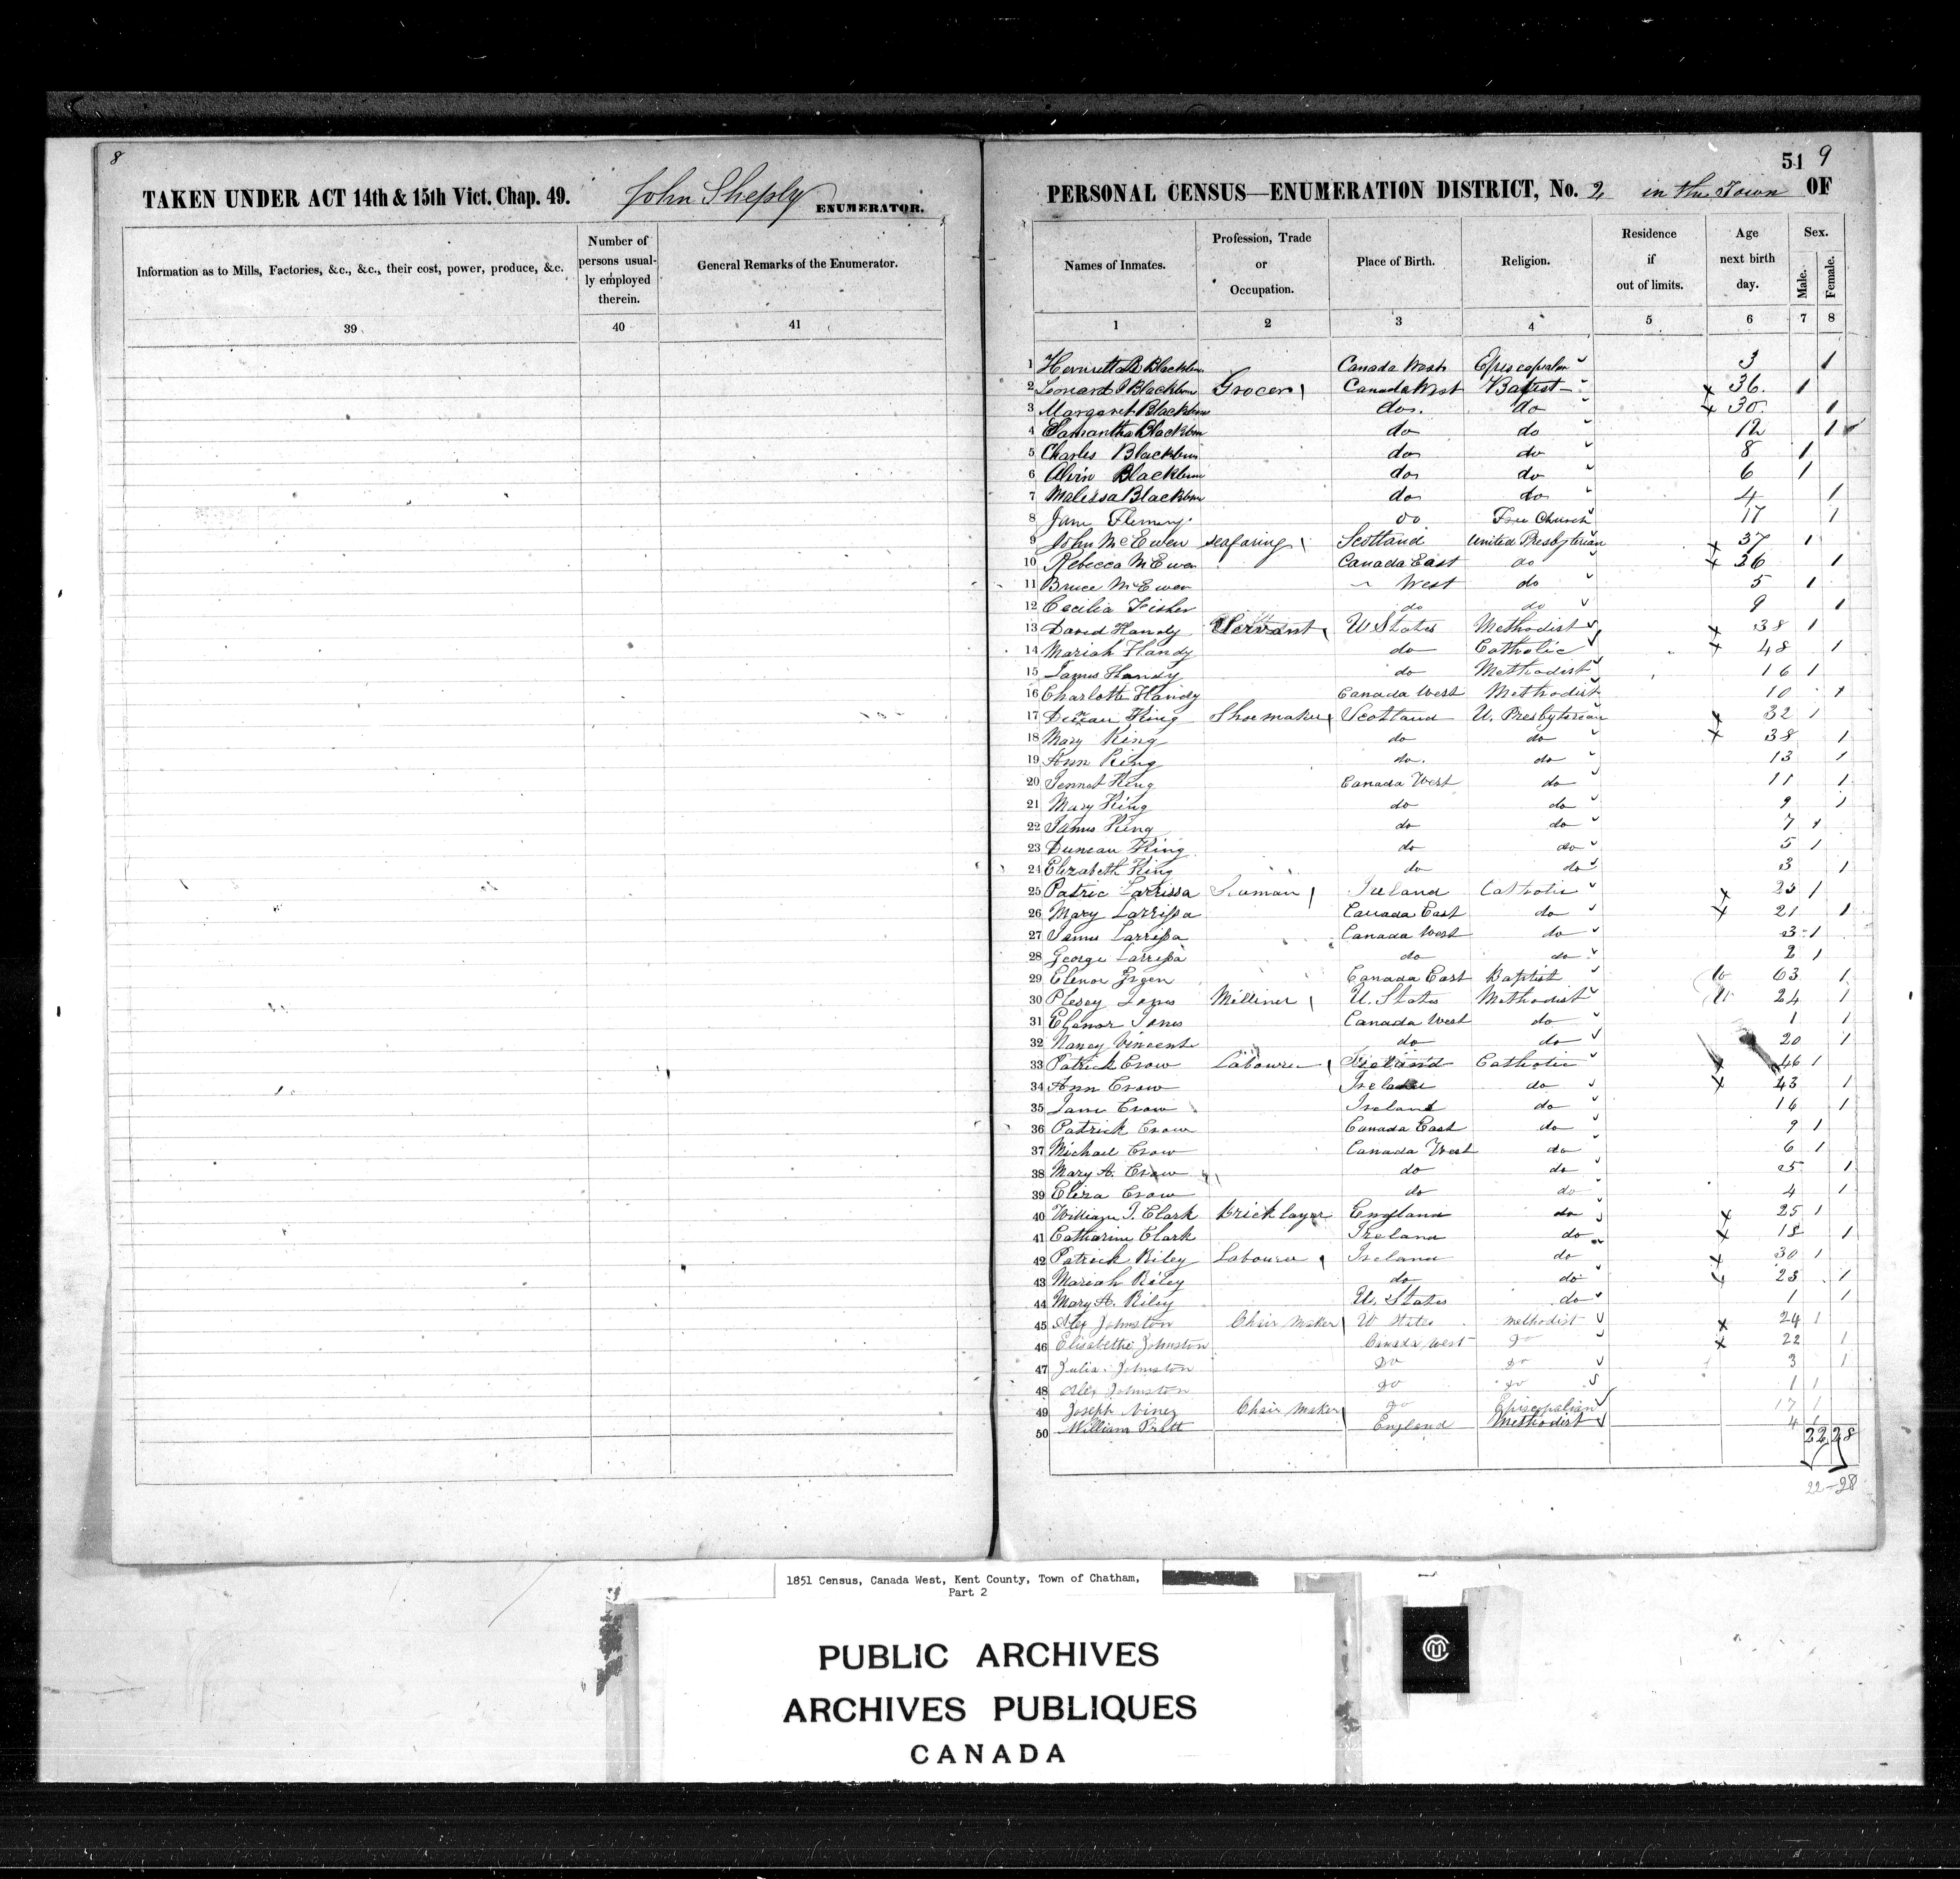 8
TAKEN UNDER ACT 14th & 15th Vict. Chap. 49. John Sheply ENUMERATOR.
Information as to Mills, Factories, &c., &c., their cost, power, produce, &c. Number of persons usually employed therein. General Remarks of the Enumerator.
39 40 41
51 9
PERSONAL CENSUS—ENUMERATION DISTRICT, No. 2 in the Town OF
Names of Inmates. Profession, Trade or Occupation. Place of Birth. Religion. Residence if out of limits. Age next birth day. Sex. Male. Female.
1 2 3 4 5 6 7 8
1 Blackburn Canada West Episcopalian 3 1
2 Leonard Blackburn Grocer Canada West Baptist 36 1
3 Margaret Blackburn do do 30 1
4 Samantha Blackburn do do 12 1
5 Charles Blackburn do do 8 1
6 Alvin Blackburn do do 6 1
7 Malissa Blackburn do do 4 1
8 Jane Fleming do Free Church 17 1
9 John McEwen seafaring Scotland United Presbyterian 37 1
10 Rebecca McEwen Canada East do 36 1
11 Bruce McEwen " West do 5 1
12 Cecilia Fisher do do 9 1
13 David Handy Servant U States Methodist 38 1
14 Mariah Handy do Catholic 48 1
15 James Handy do Methodist 16 1
16 Charlotte Handy Canada West Methodist 10 1
17 Duncan King Shoemaker Scotland U. Presbyterian 32 1
18 Mary King do do 38 1
19 Ann King do do 13 1
20 Jennet King Canada West do 11 1
21 Mary King do do 9 1
22 James King do do 7 1
23 Duncan King do do 5 1
24 Elizabeth King do do 3 1
25 Patric Larrissa Ireland Catholic 1
26 Mary Larrissa Canada East do 21 1
27 James Larrissa Canada West do 3 1
28 George Larrissa do do 2 1
29 Elenor Canada East Baptist 63 1
30 Milliner U. States Methodist 24 1
31 Elenor Jones Canada West do 1 1
32 Nancy Vincent do do 20 1
33 Patrick Crow Labourer Ireland Catholic 46 1
34 Ann Crow Ireland do 43 1
35 Jane Crow Ireland do 16 1
36 Patrick Crow Canada East do 9 1
37 Michael Crow Canada West do 6 1
38 Mary A. Crow do do 1
39 Eliza Crow do do 4 1
40 William J. Clark Bricklayer England do 25 1
41 Catharine Clark Ireland do 18 1
42 Patrick Riley Labourer Ireland do 30 1
43 Mariah Riley do do 1
44 Mary A. Riley U. States do 1 1
45 Alex Johnston Chair Maker U States Methodist 24 1
46 Elisabethe Johnston Canada West Do 22 1
47 Julia Johnston Do Do 3 1
48 Alex Johnston Do Do 1 1
49 Joseph Chair Maker Do Episcopalian 17 1
50 William Pratt England Methodist 1
22 28
22-28
1851 Census, Canada West, Kent County, Town of Chatham,
Part 2
PUBLIC ARCHIVES
ARCHIVES PUBLIQUES
CANADA